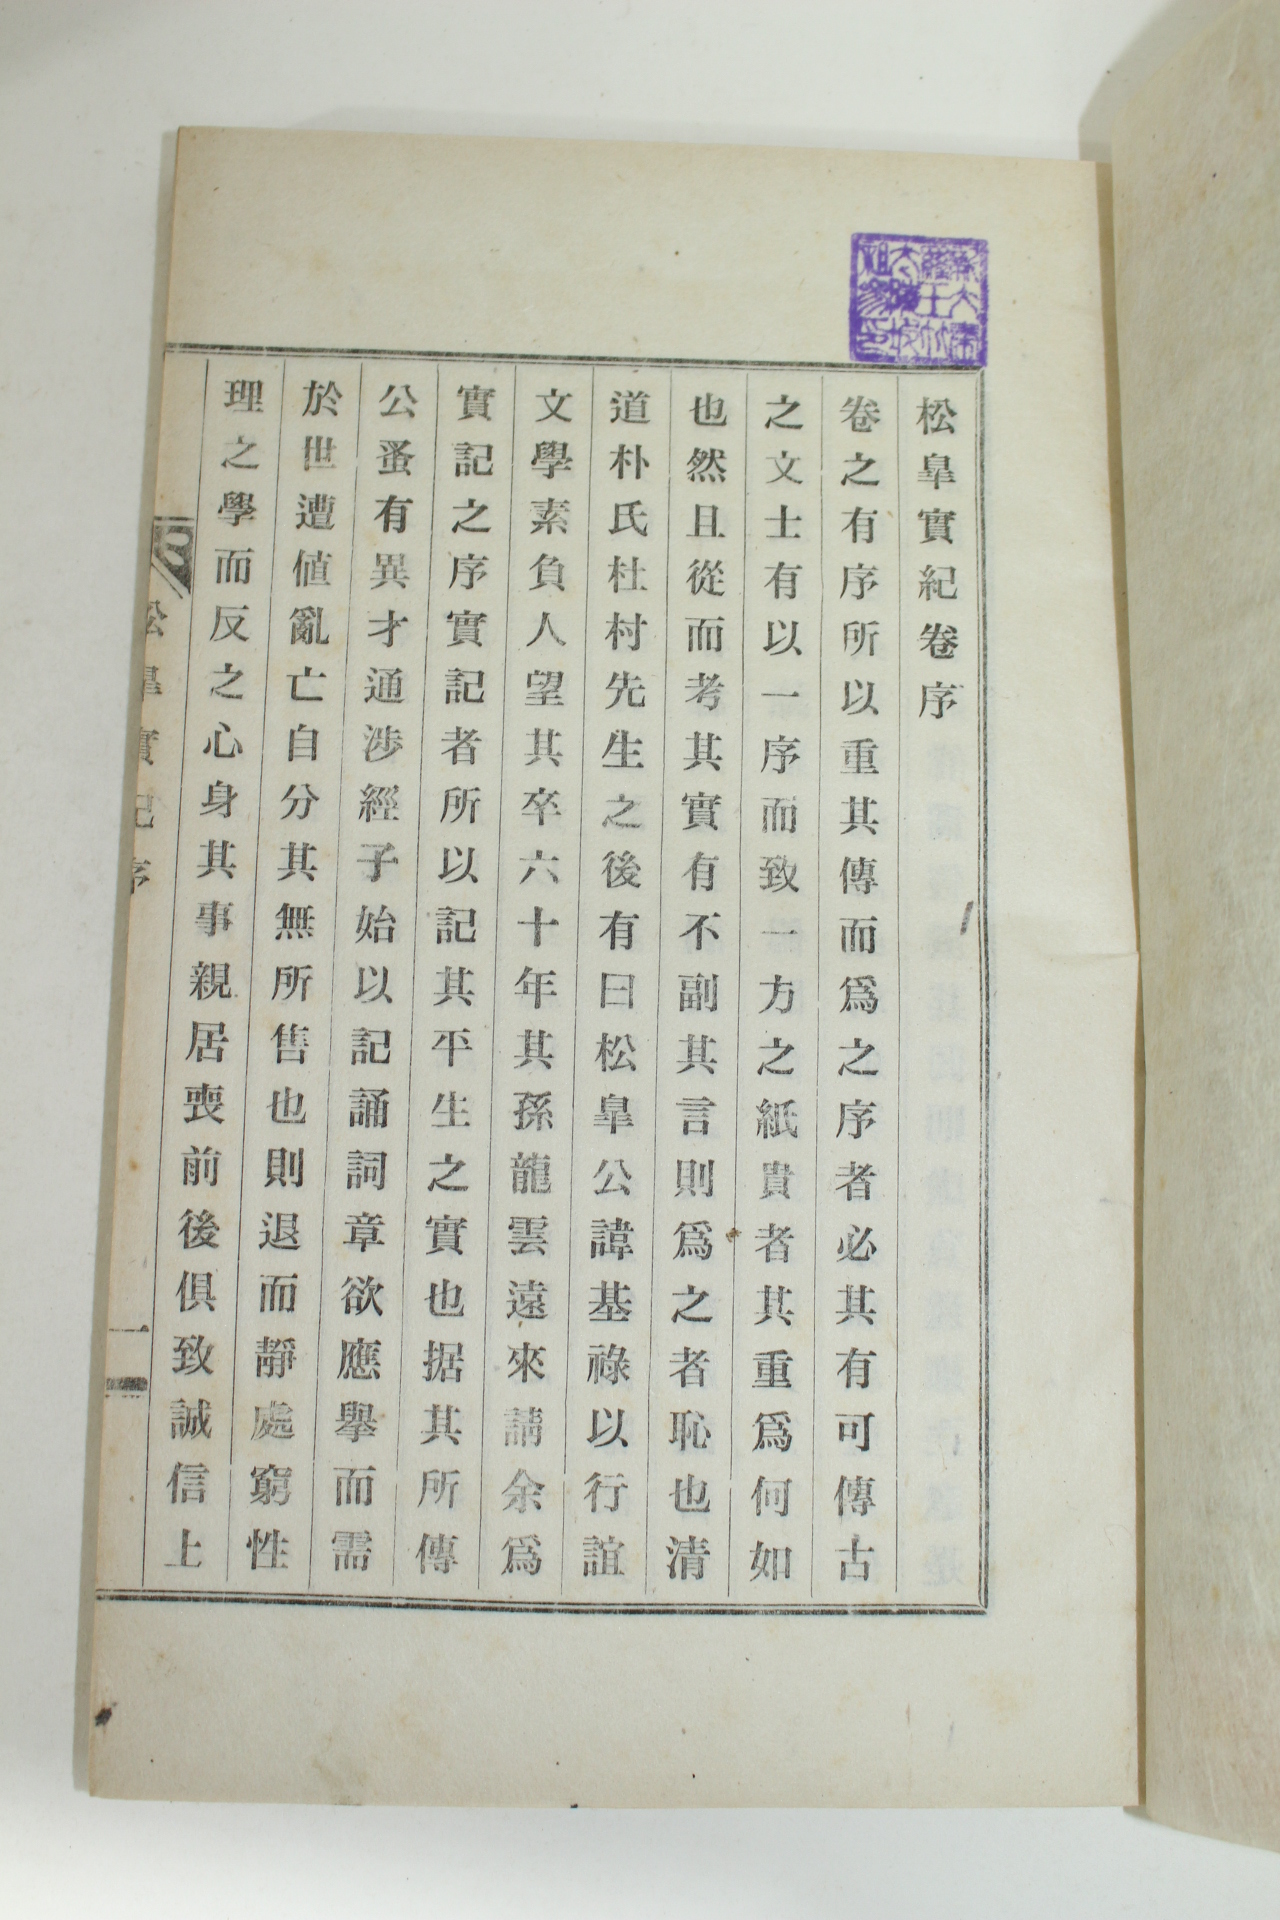 松皐實紀卷序
卷之有序所以重其傳而爲之序者必其有可傳古
之文士有以一序而致一方之紙貴者其重爲何如
也然且從而考其實有不副其言則爲之者恥也清
道朴氏杜村先生之後有曰松皐公諱基祿以行誼
文學素負人望其卒六十年其孫龍雲遠來請余爲
實記之序實記者所以記其平生之實也据其所傳
公蚤有異才通涉經子始以記誦詞章欲應擧而需
於世遭値亂亡自分其無所售也則退而靜處窮性
理之學而反之心身其事親居喪前後俱致誠信上
松皐實記序
一